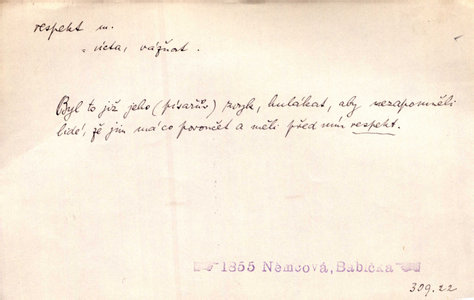 respekt m.
= úcta, vážnost.
Byl to již jeho (písařův) zvyk, hulákat, aby nezapomněli
lidé, že jim má co poroučet a měli před ním respekt.
1855 Němcová, Babička
309.22